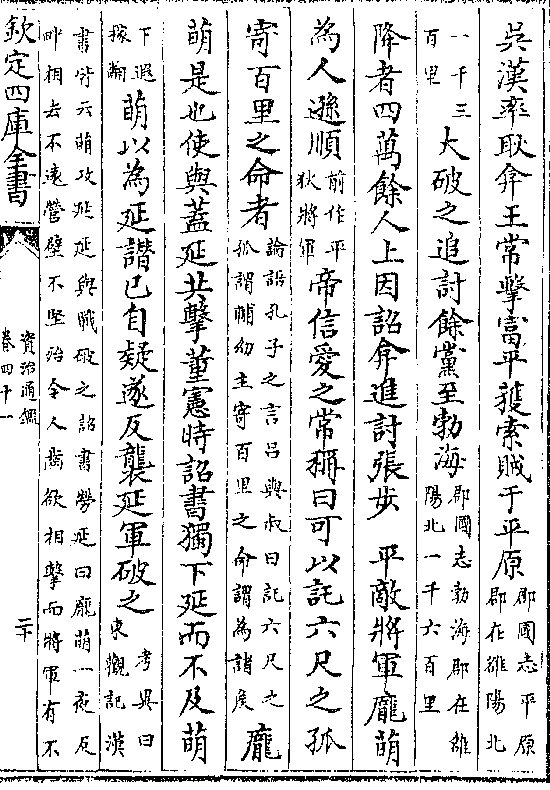 吳漢率耿弇王常擊富平獲索賊于平原郡國志平原郡在雒陽北
一千三百里大破之追討餘黨至勃海郡國志勃海郡在雒陽北一千六百里
降者四萬餘人上因詔弇進討張步 平敵將軍龐萌
為人遜順前作平狄將軍帝信愛之常稱曰可以託六尺之孤
寄百里之命者論語孔子之言呂與叔曰託六尺之孤謂輔幼主寄百里之命謂為諸侯龐
萌是也使與蓋延共擊董憲時詔書獨下延而不及萌
下遐稼翻萌以為延譖己自疑遂反襲延軍破之考異曰東觀記漢
書皆云萌攻延延與戰破之詔書勞延曰龐萌一夜反畔相去不遠營壁不堅殆令人齒欲相擊而將軍有不
欽定四庫全書
資治通鑑
卷四十一
二十